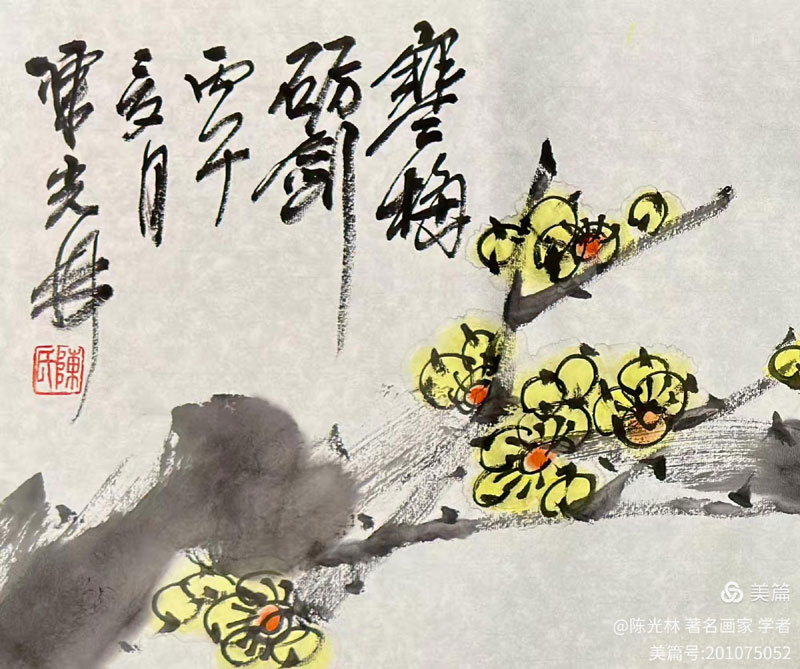 寒梅
砺剑
丙午
亥月
陈光林
陳氏
美篇
@陈光林 著名画家 学者
美篇号:201075052